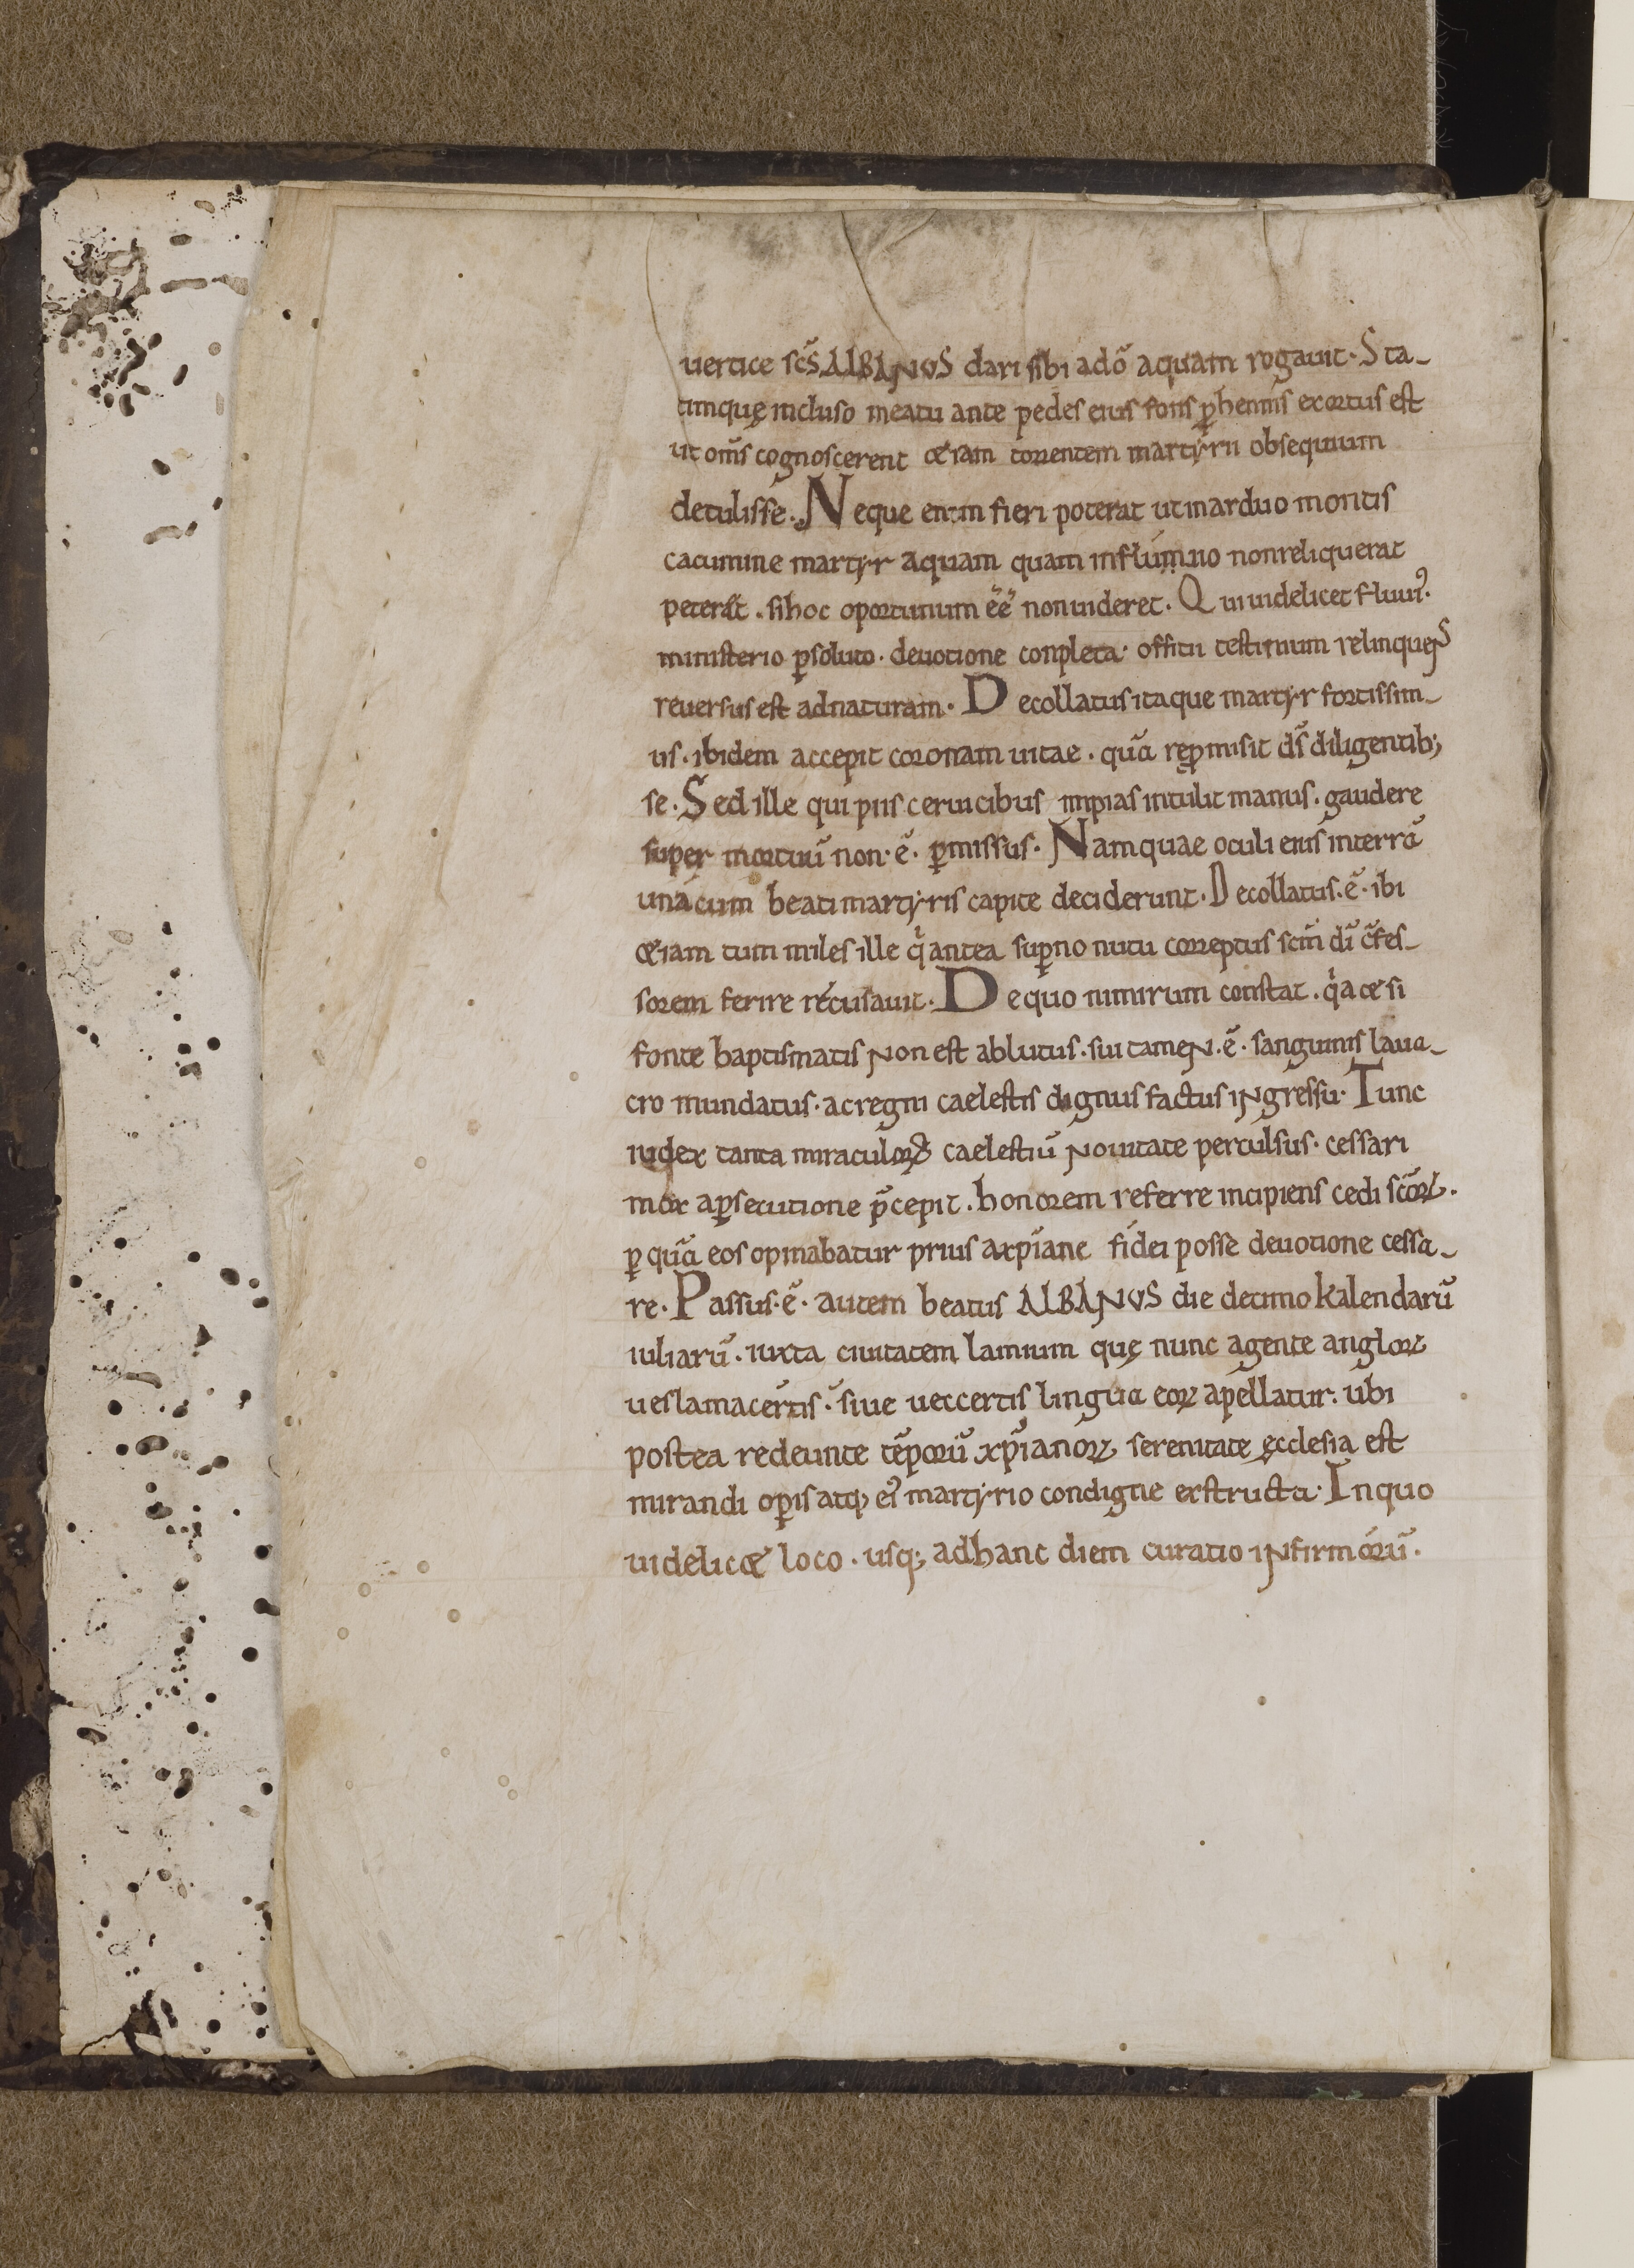 uertice scs̄ ALBANUS dari sibi a dō aquam rogauit. Sta-
timquę incluso meatu ante pedes eius fons ꝑhennis exortus est
ut om̄s cognoscerent &iam torrentem martyrii obsequium
detulisse. Neque enim fieri poterat ut in arduo montis
cacumine martyr aquam quam in flumino non reliquerat
peterat. si hoc oportunum ēē non uideret. Qui uidelicet fluui᾽.
ministerio ꝑsoluto. deuotione conpleta. officii testimium relinquens
reuersus est ad naturam. Decollatus itaque martyr fortissim-
us. ibidem accepit coronam uitae. quā reꝓmisit ds̄ diligentib;
se. Sed ille qui piis ceruicibus impias intulit manus. gaudere
super mortuū non. ē. ꝑmissus. Nam quae oculi eius in terrā
una cum beati martyris capite deciderunt. Decollatus. ē. ibi
&iam tum miles ille qⁱ antea suꝑno nutu correptus scm̄ dī c̄fes-
sorem ferire recusauit. De quo nimirum constat. qⁱa & si
fonte baptismatis non est ablutus. sui tamen. ē. sanguinis laua-
cro mundatus. ac regni caelestis dignus factus ingressu. Tunc
iudex tanta miraculoꝝ caelestiū nouitate perculsus. cessari
mox a ꝑsecutione p̄cepit. honorem referre incipiens cedi scōꝝ.
ꝑ quā eos opinabatur prius a xp̄iane fidei posse deuotione cessa-
re. Passus. ē. autem beatus ALBANUS die decimo kalendarū
iuliarū. iuxta ciuitatem lamium quę nunc a gente angloꝝ
ueslamacertis. siue ueccertis lingua eoꝝ apellatur. ubi
postea redeunte tēporū xp̄ianoꝝ serenitate ęcclesia est
mirandi oꝑis atq; ei᾽ martyrio condigne exstructa. In quo
uidelic& loco. usq; ad hanc diem curatio infirmorū.